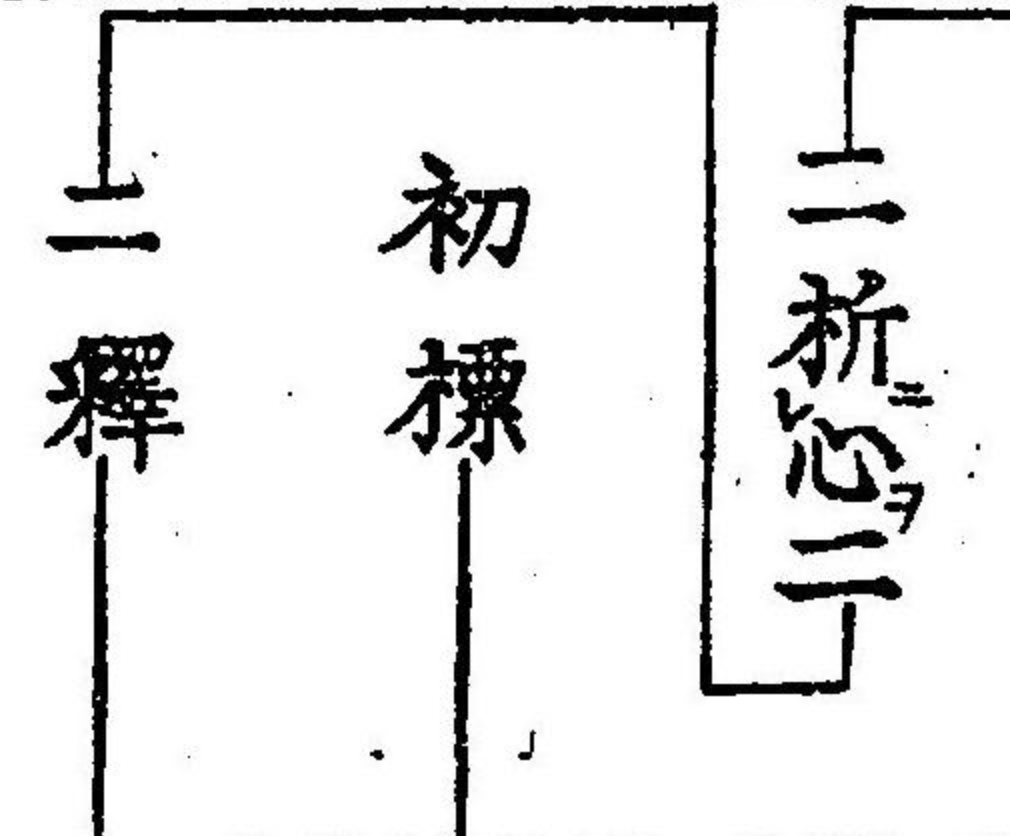 二析ニ㆑心ヲ二
初標
二釋